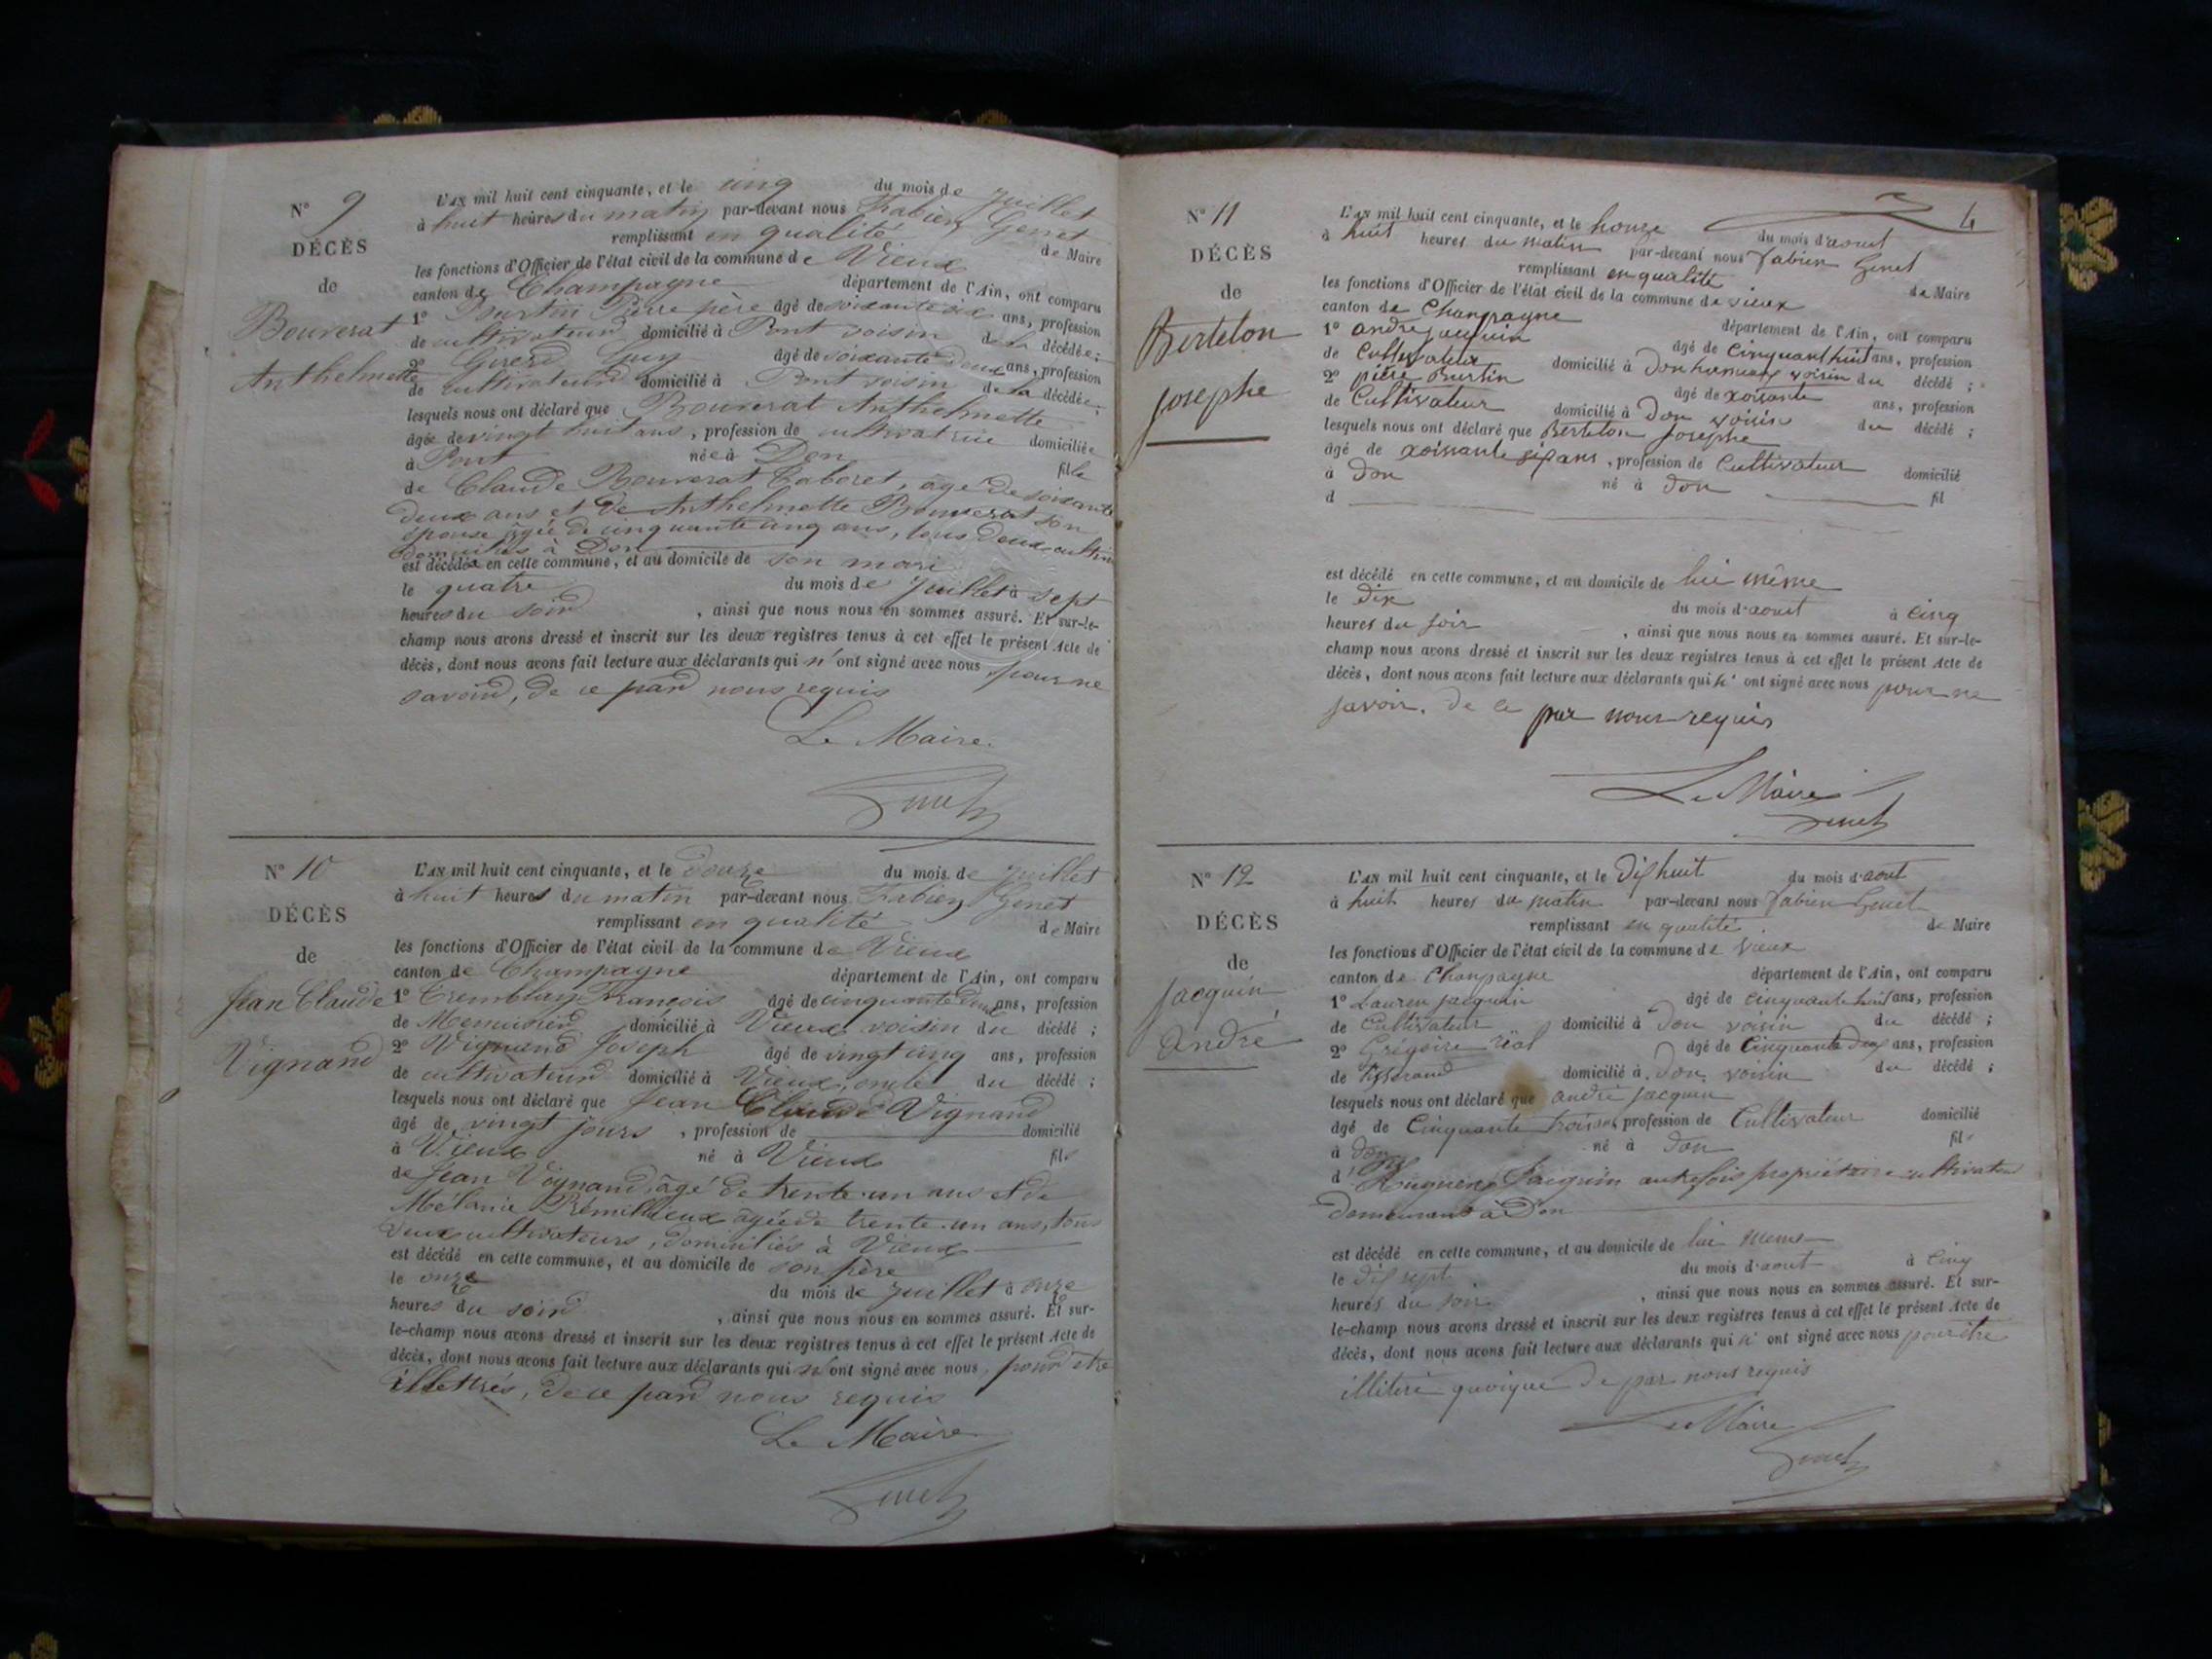 N° 9
DÉCÈS
de
Bouverat
Anthelmette
L'AN mil huit cent cinquante, et le cinq du mois de Juillet
à huit heures du matin par-devant nous Fabien Genet
remplissant en qualité de Maire
les fonctions d'Officier de l'état civil de la commune de Vieux
canton de Champagne département de l'Ain, ont comparu
1° Burtin Pierre père âgé de soixante six ans, profession
de cultivateur domicilié à Pont voisin de la décédée ;
2° Guy âgé de soixante deux ans, profession
de cultivateur domicilié à Pont voisin de la décédée ;
lesquels nous ont déclaré que Bouverat Anthelmette
âgée de vingt huit ans, profession de cultivatrice domiciliée
à Pont née à Don fille
de Claude Bouverat Taboret, âgé de soixante
deux ans et de Anthelmette Bouverat son
épouse âgée de cinquante cinq ans, tous deux cultiv
domiciliés à Don
est décédée en cette commune, et au domicile de son mari
le quatre du mois de Juillet à sept
heures du soir , ainsi que nous nous en sommes assuré. Et sur-le-
champ nous avons dressé et inscrit sur les deux registres tenus à cet effet le présent Acte de
décès, dont nous avons fait lecture aux déclarants qui n'ont signé avec nous pour ne
savoir, de ce par nous requis
Le Maire
Genet
N° 10
DÉCÈS
de
Jean Claude
Vignand
L'AN mil huit cent cinquante, et le douze du mois de Juillet
à huit heures du matin par-devant nous Fabien Genet
remplissant en qualité de Maire
les fonctions d'Officier de l'état civil de la commune de Vieux
canton de Champagne département de l'Ain, ont comparu
1° Tremblay François âgé de cinquante deux ans, profession
de Menuisier domicilié à Vieux voisin du décédé ;
2° Vignand Joseph âgé de vingt cinq ans, profession
de cultivateur domicilié à Vieux, oncle du décédé ;
lesquels nous ont déclaré que Jean Claude Vignand
âgé de vingt jours , profession de domicilié
à Vieux né à Vieux fils
de Jean Vignand, âgé de trente-un ans et de
Mélanie Prémillieux âgée de trente-un ans, tous
deux cultivateurs, domiciliés à Vieux
est décédé en cette commune, et au domicile de son père
le onze du mois de juillet à onze
heures du soir , ainsi que nous nous en sommes assuré. Et sur-
le-champ nous avons dressé et inscrit sur les deux registres tenus à cet effet le présent Acte de
décès, dont nous avons fait lecture aux déclarants qui n'ont signé avec nous, pour être
illettrés, de ce par nous requis
Le Maire
Genet
4
N° 11
DÉCÈS
de
Bertelon
Josephe
L'AN mil huit cent cinquante, et le honze du mois d'aout
à huit heures du matin par-devant nous fabien Genet
remplissant en qualité de Maire
les fonctions d'Officier de l'état civil de la commune de vieux
canton de Champagne département de l'Ain, ont comparu
1° andré jacquin âgé de Cinquant huit ans, profession
de Cultivateur domicilié à Don hameau voisin du décédé ;
2° pière Burtin âgé de soisante ans, profession
de Cultivateur domicilié à Don voisin du décédé ;
lesquels nous ont déclaré que Bertelon josephe
âgé de soissante six ans, profession de Cultivateur domicilié
à Don né à Don fil
d
est décédé en cette commune, et au domicile de lui même
le dix du mois d'aout à cinq
heures du soir , ainsi que nous nous en sommes assuré. Et sur-le-
champ nous avons dressé et inscrit sur les deux registres tenus à cet effet le présent Acte de
décès, dont nous avons fait lecture aux déclarants qui n'ont signé avec nous pour ne
savoir. de ce par nous requis
Le Maire
Genet
N° 12
DÉCÈS
de
jacquin
andré
L'AN mil huit cent cinquante, et le dix huit du mois d'aout
à huit heures du matin par-devant nous fabien Genet
remplissant en qualité de Maire
les fonctions d'Officier de l'état civil de la commune de vieux
canton de Champagne département de l'Ain, ont comparu
1° Lauren jacquin âgé de cinquante huit ans, profession
de Cultivateur domicilié à Don voisin du décédé ;
2° Grégoire réal âgé de Cinquante deux ans, profession
de tisserand domicilié à Don voisin du décédé ;
lesquels nous ont déclaré que andré jacquin
âgé de Cinquante trois ans, profession de Cultivateur domicilié
à Don né à Don fils
d' Jacquin autrefois propriétaire cultivateur
demeurant à Don
est décédé en cette commune, et au domicile de lui meme
le dix sept du mois d'aout à Cinq
heures du soir , ainsi que nous nous en sommes assuré. Et sur-
le-champ nous avons dressé et inscrit sur les deux registres tenus à cet effet le présent Acte de
décès, dont nous avons fait lecture aux déclarants qui n'ont signé avec nous pour être
illiteré quoique de par nous requis
Le Maire
Genet